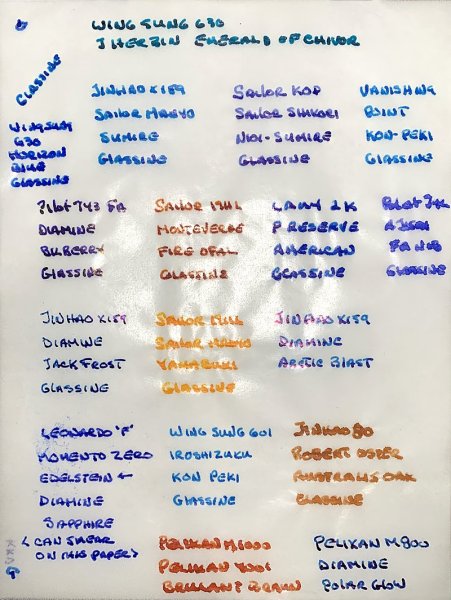 WING SUNG 630
J HERBIN EMERALD OF CHIVOR
GLASSINE
WING SUNG
630
HORIZON
BLUE
GLASSINE
JINHAO X159
SAILOR MANYO
SUMIRE
GLASSINE
SAILOR KOP
SAILOR SHIKORI
NIOI-SUMIRE
GLASSINE
VANISHING
POINT
KON-PEKI
GLASSINE
PILOT 743 FA
DIAMINE
BILBERRY
GLASSINE
SAILOR 1911L
MONTEVERDE
FIRE OPAL
GLASSINE
LAMY 2K
P RESERVE
AMERICAN
GLASSINE
PILOT
AJISAI
FA NIB
GLASSINE
JINHAO X159
DIAMINE
JACK FROST
GLASSINE
SAILOR 1911L
SAILOR
YAMABUKI
GLASSINE
JINHAO X159
DIAMINE
ARCTIC BLAST
LEONARDO 'F'
MOMENTO ZERO
EDELSTEIN ←
DIAMINE
SAPPHIRE
< CAN SMEAR
ON THIS PAPER >
WING SUNG 601
IROSHIZUKU
KON PEKI
GLASSINE
JINHAO 80
ROBERT OSTER
AUSTRALIS OAK
GLASSINE
PELIKAN M1000
PELIKAN 4001
BRILLIANT BRAUN
PELIKAN M800
DIAMINE
POLAR GLOW